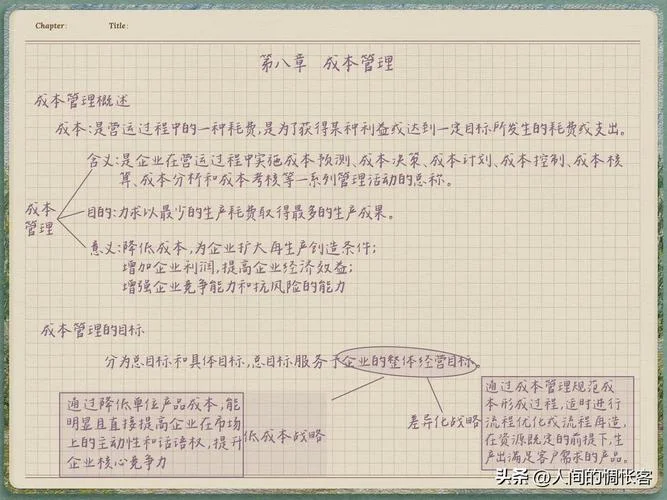 Chapter:
Title:
第八章 成本管理
成本管理概述
成本:是营运过程中的一种耗费,是为了获得某种利益或达到一定目标所发生的耗费或支出。
含义:是企业在营运过程中实施成本预测、成本决策、成本计划、成本控制、成本核
算、成本分析和成本考核等一系列管理活动的总称。
成本
管理
目的:力求以最少的生产耗费取得最多的生产成果。
意义:降低成本,为企业扩大再生产创造条件;
增加企业利润,提高企业经济效益;
增强企业竞争能力和抗风险的能力
成本管理的目标
分为总目标和具体目标,总目标服务于企业的整体经营目标。
通过降低单位产品成本,能
明显且直接提高企业在市场
上的主动性和话语权,提升
企业核心竞争力
低成本战略
差异化战略
通过成本管理规范成
本形成过程,适时进行
流程优化或流程再造,
在资源既定的前提下,生
产出满足客户需求的产品。
头条 @人间的惆怅客